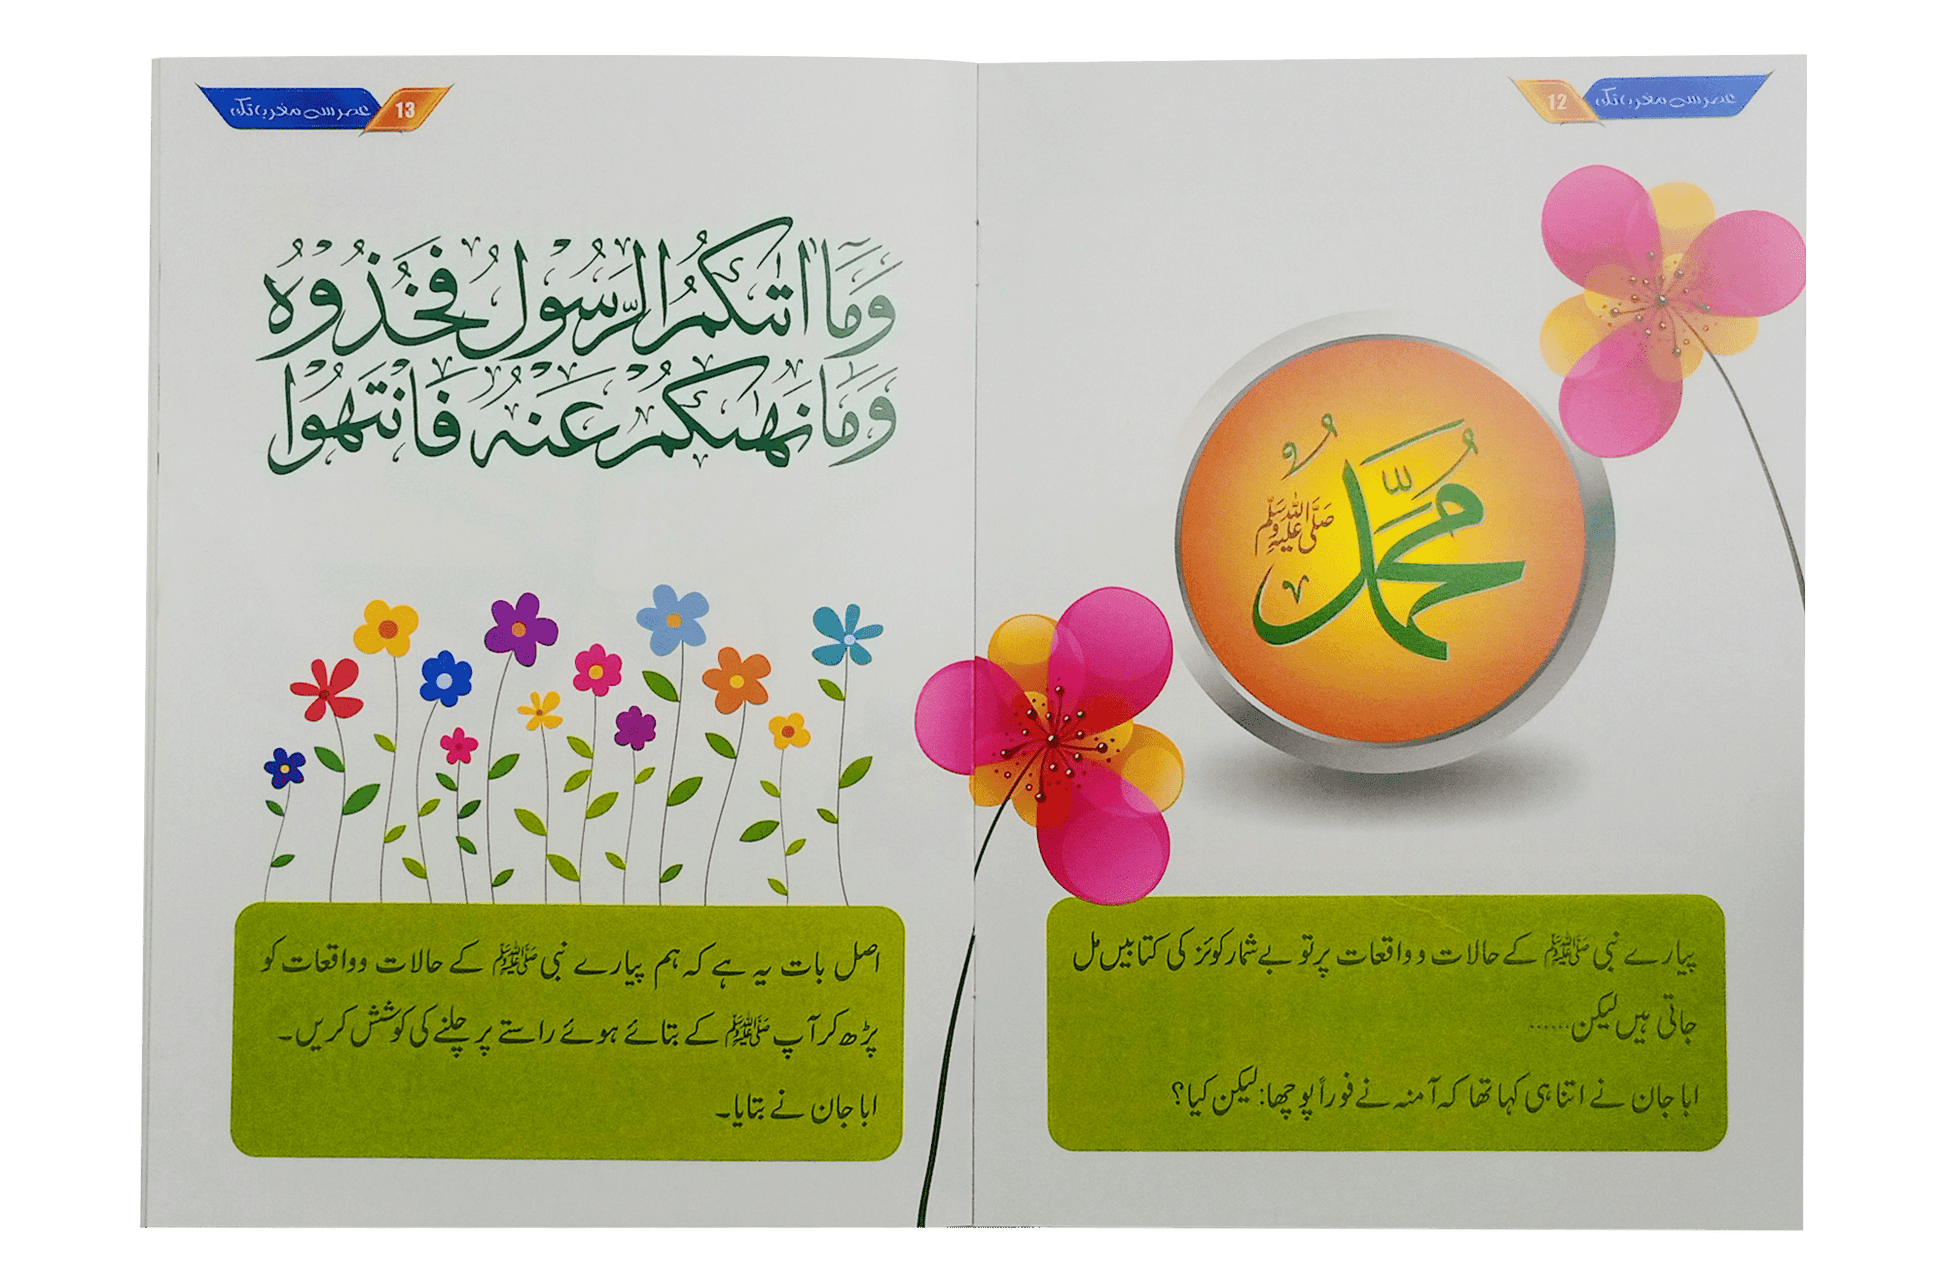 عصر سے مغرب تک
12
مُحَمَّدٌ
صَلَّى اللهُ عَلَيْهِ وَسَلَّم
پیارے نبی ﷺ کے حالات و واقعات پر تو بے شمار کوئز کی کتابیں مل
جاتی ہیں لیکن......
ابا جان نے اتنا ہی کہا تھا کہ آمنہ نے فوراً پوچھا: لیکن کیا؟
13
عصر سے مغرب تک
وَمَآ اٰتٰىكُمُ الرَّسُوْلُ فَخُذُوْهُ
وَمَا نَهٰىكُمْ عَنْهُ فَانْتَهُوْا
اصل بات یہ ہے کہ ہم پیارے نبی ﷺ کے حالات و واقعات کو
پڑھ کر آپ ﷺ کے بتائے ہوئے راستے پر چلنے کی کوشش کریں۔
ابا جان نے بتایا۔